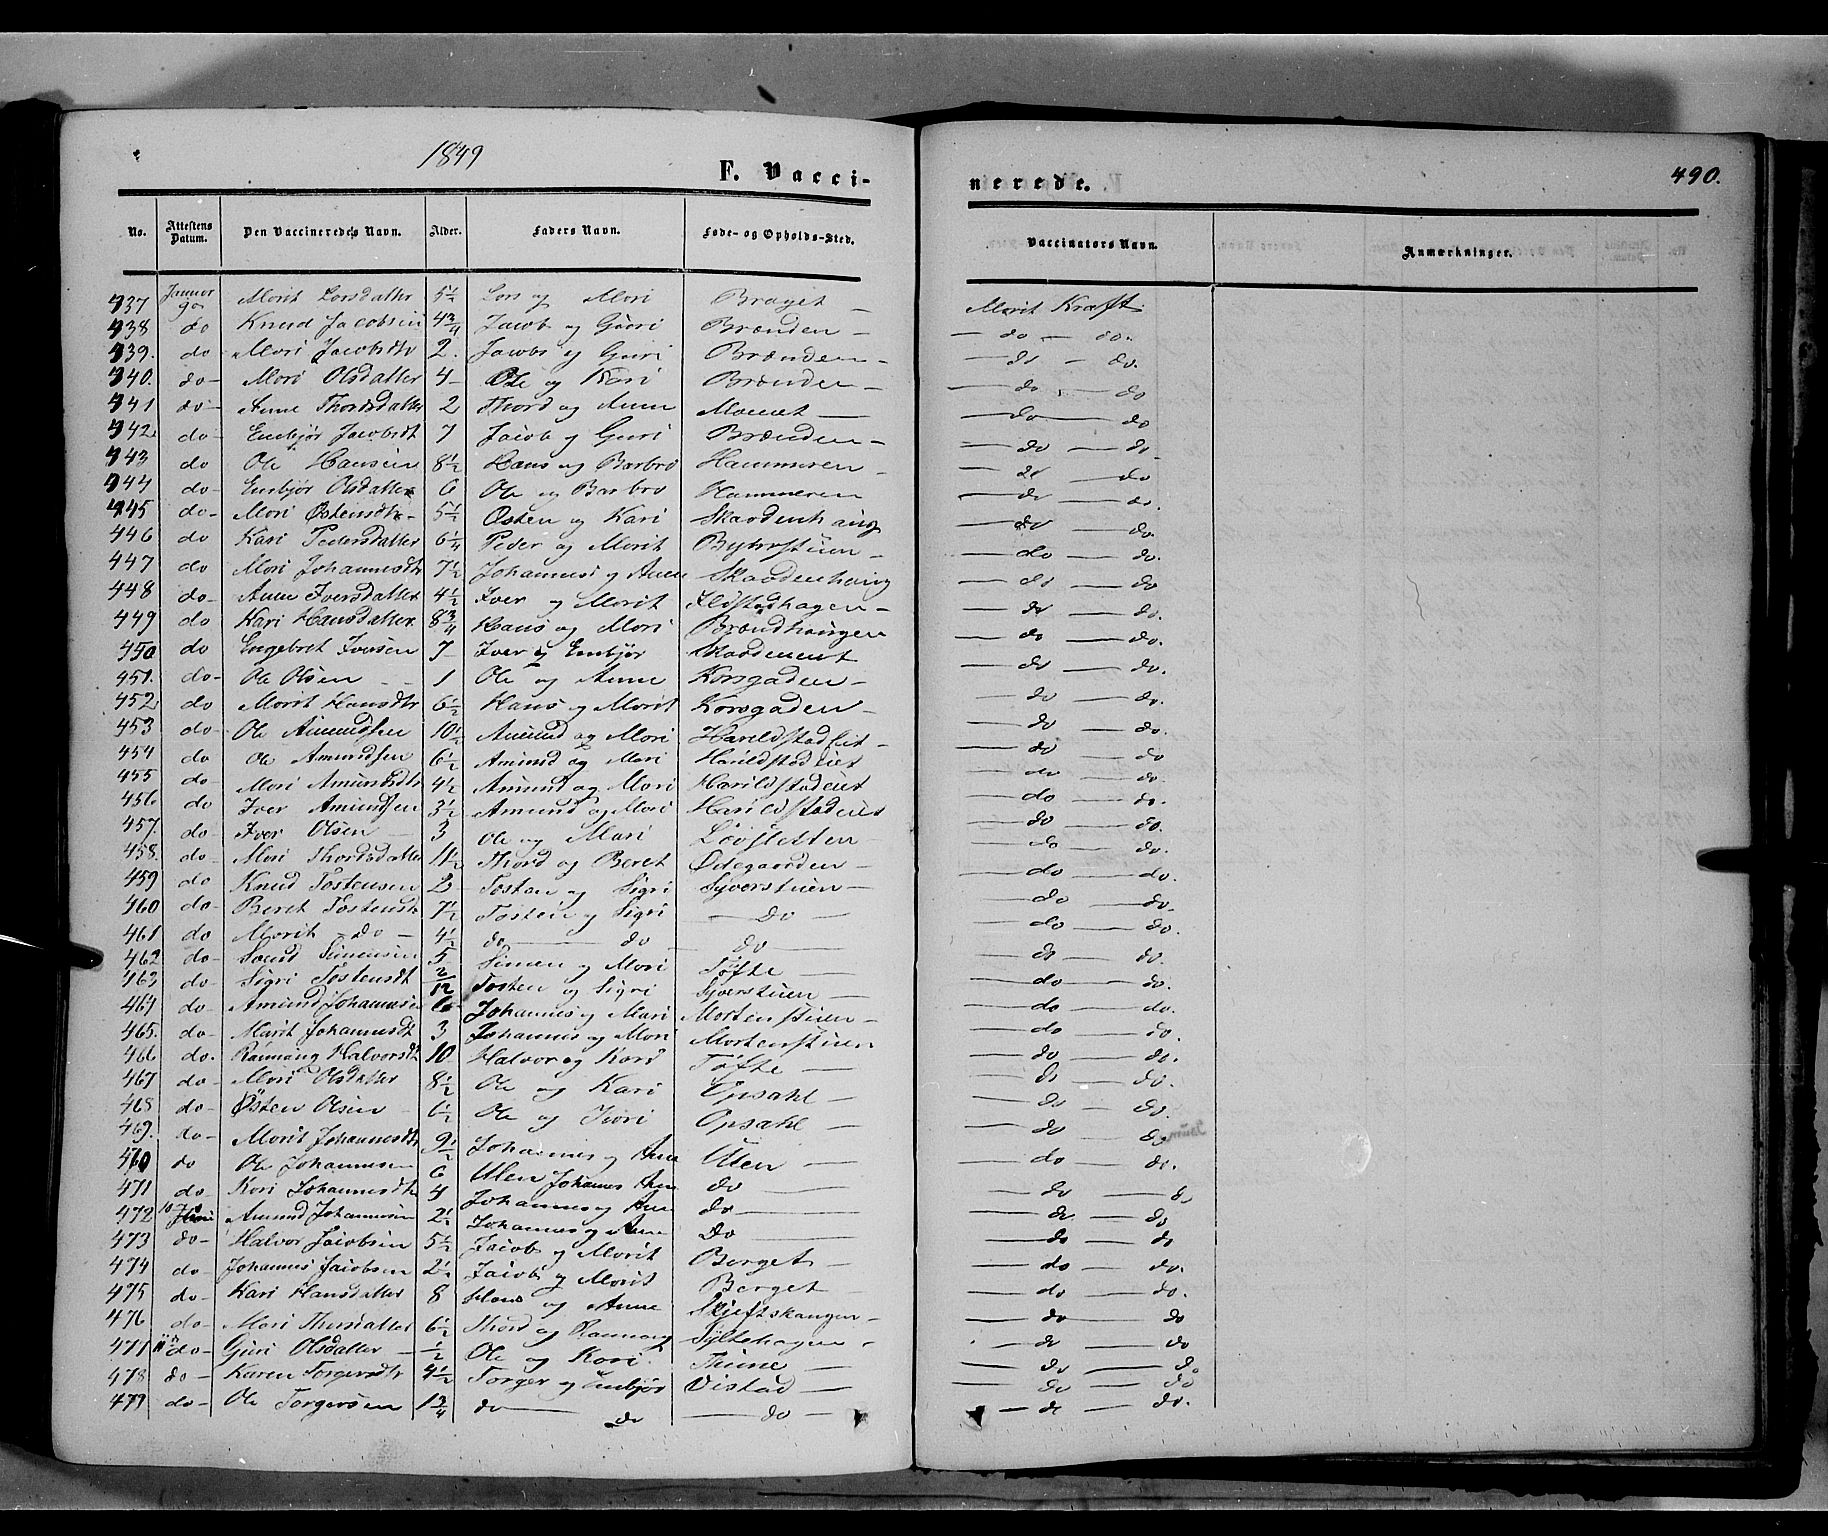 1849
F. Vacci-
nerede.
490.
No. Attestens Datum. Den Vaccineredes Navn. Alder. Faders Navn. Føde- og Opholds-Sted. Vaccinators Navn. Anmærkninger.
437 Januar 9de Marit Larsdatter 5½ Lars og Mari Braget — Marit Kræft
438 do Knud Jacobsen 4¾ Jacob og Guri Brænden — do — do.
439. do Mari Jacobsdtr 2. Jacob og Guri Brænden — do — do.
440. do Mari Olsdatter 4 Ole og Kari Brænden — do — do
441 do Anne Thordsdatter 2 Thord og Anne — do — do
442 do Embjør Jacobsdt 7 Jacob og Guri Brænden — do — do.
443 do Ole Hansen 8½ Hans og Barbro Hammeren — do — do
444 do Embjør Olsdatter 6 Ole og Barbro Hammeren — do — do.
445 do Mari Østensdtr 5½ Østen og Kari Skardenhaug — do — do.
446 do Kari Pedersdatter 6¼ Peder og Marit — do — do.
447 do Mari Johannesdtr 7½ Johannes og Anne Skaadenhaug — do — do.
448 do Anne Iversdatter 4½ Iver og Marit Ildstadhagen — do — do.
449 do Kari Hansdatter 8¾ Hans og Mari Brændhaugen — do — do.
450 do Engebret Iversen 7 Iver og Embjør — do — do.
451. do Ole Olsen 1 Ole og Anne Korsgaden — do — do.
452 do Marit Hansdtr 6½ Hans og Marit Korsgaden — do — do.
453 do Ole Amundsen 10½ Amund og Mari — do — do.
454 do Ole Amundsen 6½ Amund og Mari Harildstadeiet — do — do
455 do Mari Amundsdtr 4½ Amund og Mari Harildstadeiet — do — do.
456 do Iver Amundsen 3½ Amund og Mari Harildstadeiet — do — do.
457. do Iver Olsen 3 Ole og Mari Løvsletten — do — do.
458. do Mari Thordsdatter 4½ Thord og Beret Ødegaarden — do — do.
459 do Knud Tostensen Tosten og Sigri Syverstuen — do — do.
460 do Beret Tostensdt 7½ Tosten og Sigri — do — do — do.
461 do Marit — do — 4½ do — do — do — do — do.
462 do Simensen 5 Simen og Mari Tøfte — do — do.
463 do Sigri Tostensdt 2/12 Tosten og Sigri Syverstuen — do — do.
464 do Amund Johannesen 6 Johannes og Mari Mortenstuen — do — do.
465. do Marit Johannesdt 3 Johannes og Mari Mortenstuen — do — do.
466 do. Rannaug Halvorsdt 10 Halvor og Kari Tøfte — do — do.
467 do Mari Olsdatter 8½ Ole og Kari Opsahl — do — do.
468 do Østen Olsen 6½ Ole og Kari Opsahl — do — do.
469. do Marit Johannesdtr 9½ Johannes og Anne Ulen — do — do
460 do Ole Johannesen 6 Ulen Johannes Anne do — do — do.
471 do Kari Johannesdtr 4 Johannes og Anne do — do — do
472 10 Amund Johannesen 2½ Johannes og Anne Do — do — do
473 do Halvor Jacobsen 5½ Jacob og Marit Berget — do — do
474 do Johannes Jacobsen 2½ Jacob og Marit Berget — do — do.
475 do Kari Hansdatter 8 Hans og Anne — do — do.
476 do Mari Thordsdatter 6½ Thord og Rannaug Syltehagen — do — do
477 11 do Guri Olsdatter ½ Ole og Kari Thune — do — do
478 do Karen Torgersdtr 4½ Torger og Embjør Vistad — do — do.
479 do Ole Torgersen 1¾ do — do — do — do — do.